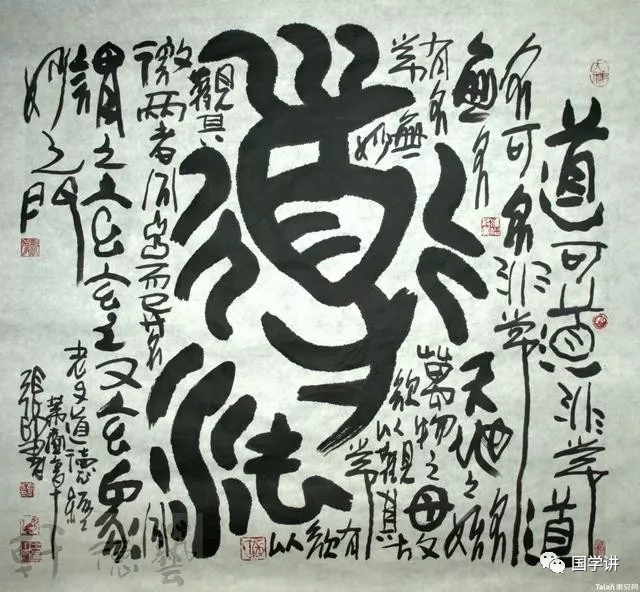 道可道非常道
名可名非常名
無名天地之始
有名萬物之母故
常無欲以觀其
妙常有欲以
觀其
徼兩者同出而異名同
謂之玄玄之又玄眾
妙之門
老子道德經
国学讲